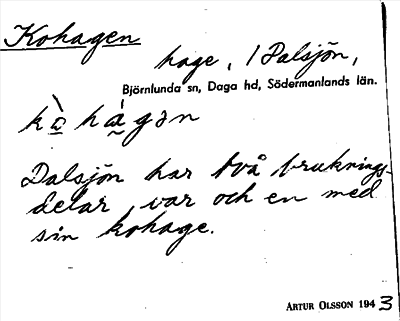 Kohagen
hage, / Dalsjön,
Björnlunda sn, Daga hd, Södermanlands län.
Dalsjön har två bruknings-
delar, var och en med
sin kohage.
ARTUR OLSSON 1943